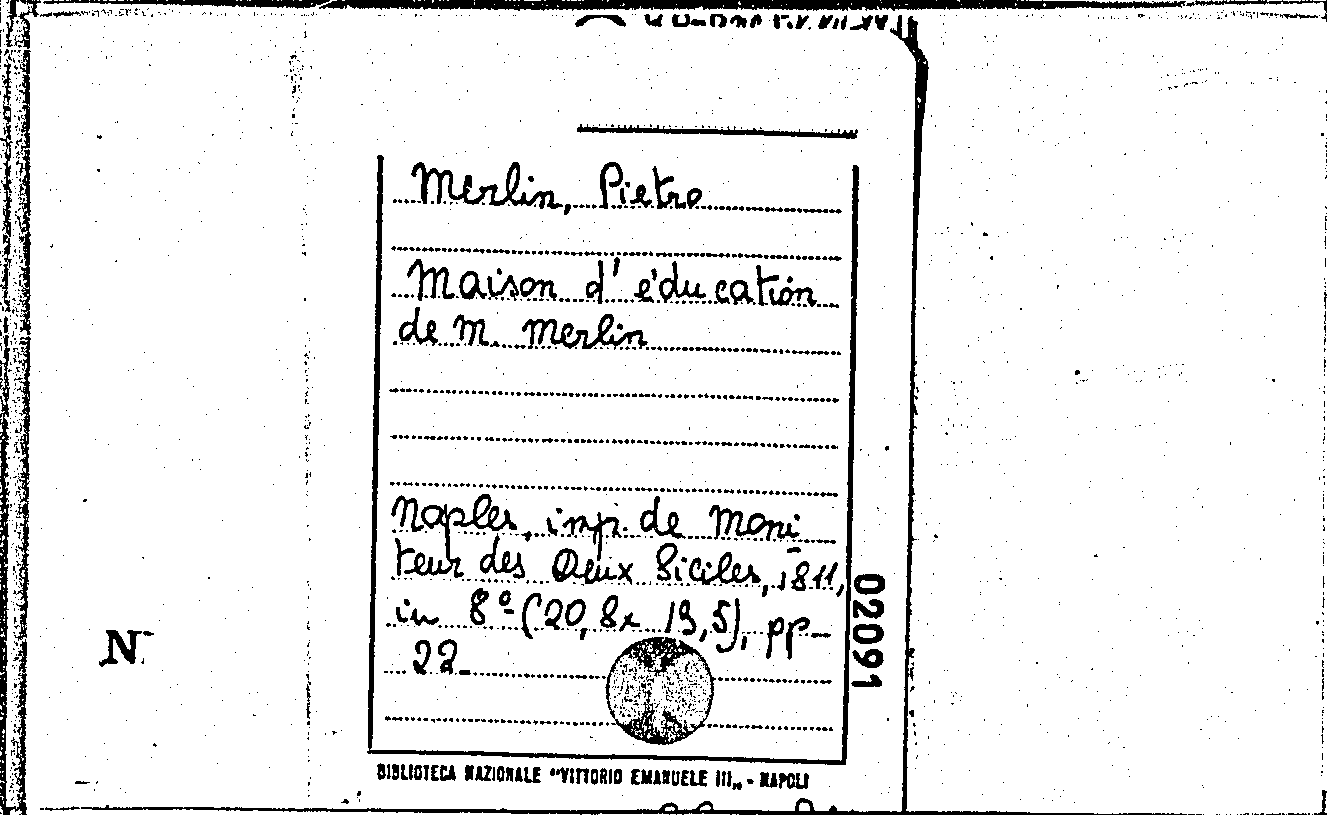 Merlin, Pietro
Maison d' éducation
de M. Merlin
Naples, imp. de Moni
teur des Deux Siciles, 1811,
in 8º (20,8x 13,5), pp-
22.
02091
N
BIBLIOTECA NAZIONALE "VITTORIO EMANUELE III„ - NAPOLI